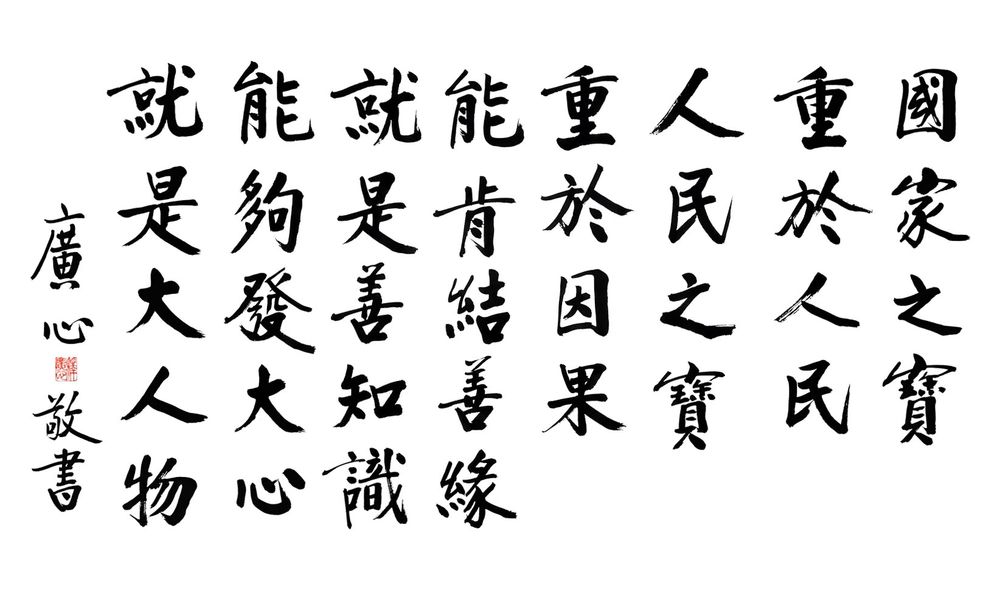 國家之寶
重於人民
人民之寶
重於因果
能肯結善緣
就是善知識
能夠發大心
就是大人物
廣心敬書